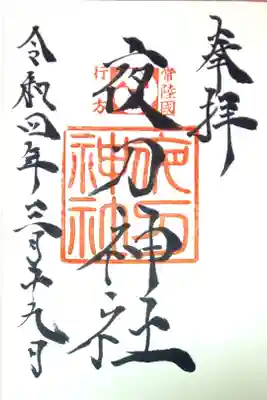 奉拝
常陸國
行方
夜刀神社
夜刀
神社
令和四年三月十九日